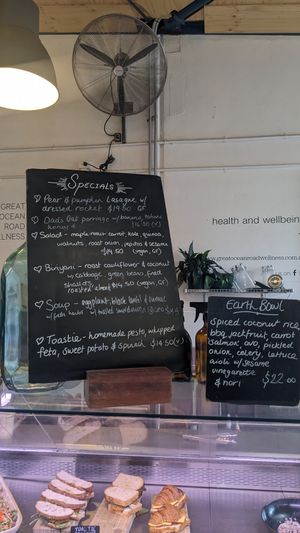 Specials
Pear & pumpkin Lasagne w
dressed rocket $19.50 GF
Dad's Oat porridge w banana,
honey &
$16.50 (v)
Salad - maple roast carrot, kale,
walnuts, roast onion, & sesame
$14.50 (vegan, GF)
Binyoni - roast cauliflower & coconut
w cabbage, green beans, fried
shallots,
roasted almond $19.50 (vegan, GF)
Soup - eggplant, black & turmeric
w fresh herbs w toasted sourdough
Toastie - homemade pesto, whipped
feta, sweet potato & spinach $14.50 (v)
GREAT
OCEAN
ROAD
WELLNESS
health and wellbein
w.greatoceanroadwellness.com.
Earth Bowl
Spiced coconut rice
bbq jackfruit, carrot
Salmon, avo, pickled
onion, celery, lettuce,
aioli w/sesame
vinegarette
& nori $22.00